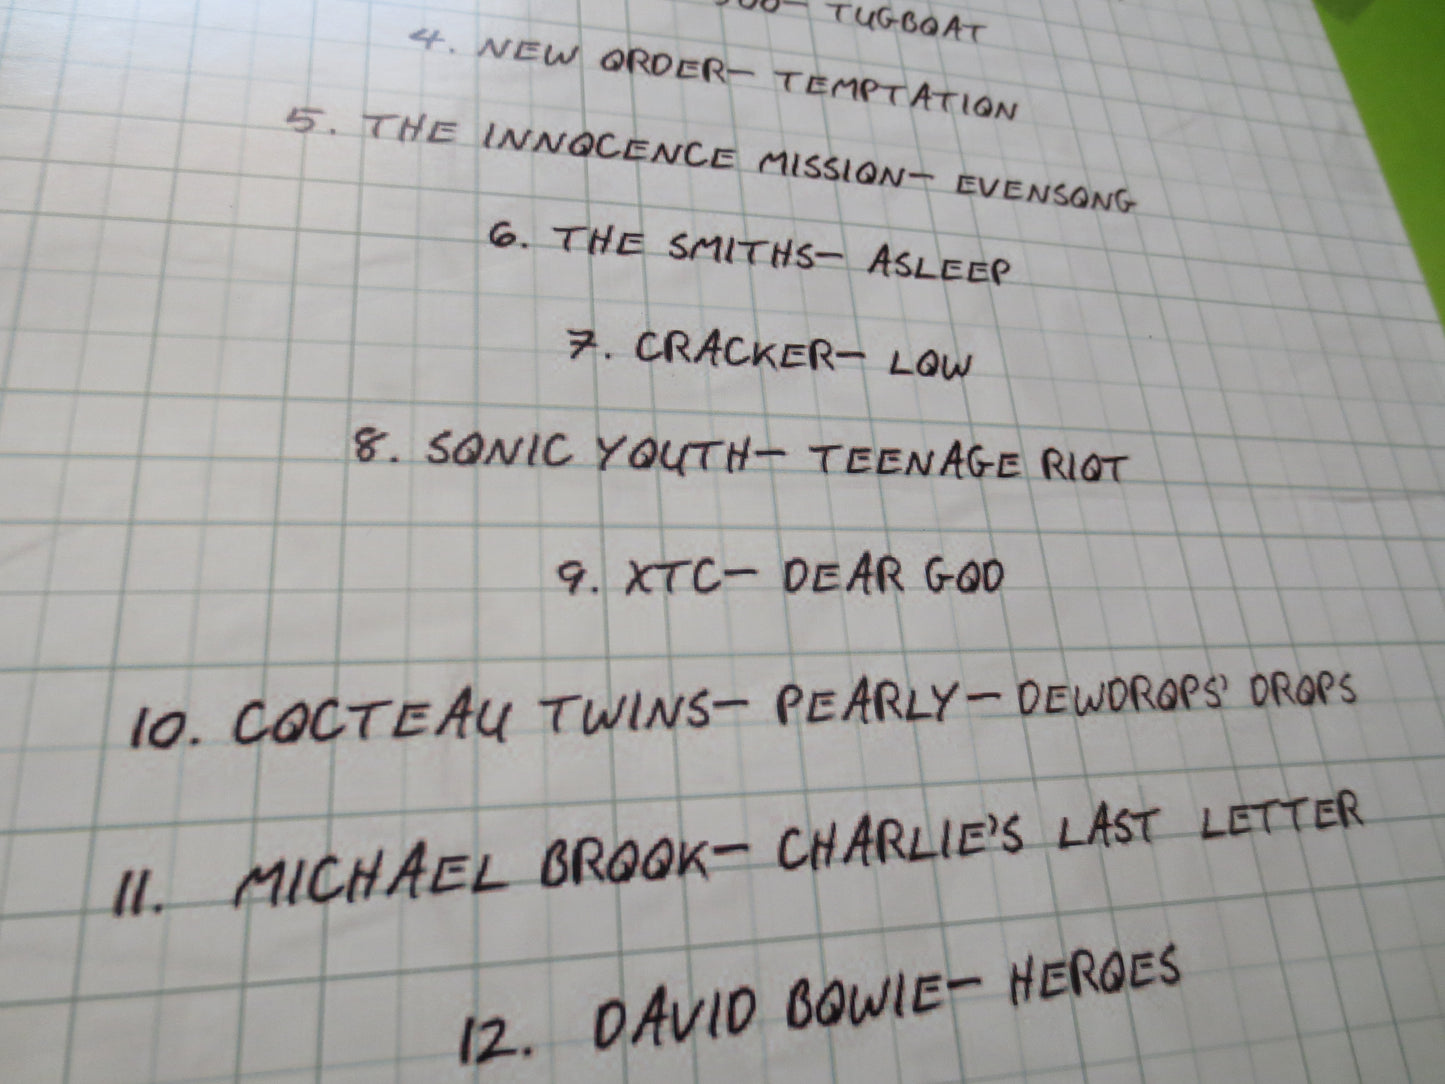 TUGBOAT
4. NEW ORDER– TEMPTATION
5. THE INNOCENCE MISSION– EVENSONG
6. THE SMITHS– ASLEEP
7. CRACKER– LOW
8. SONIC YOUTH– TEENAGE RIOT
9. XTC– DEAR GOD
10. COCTEAU TWINS– PEARLY–DEWDROPS' DROPS
11. MICHAEL BROOK– CHARLIE'S LAST LETTER
12. DAVID BOWIE– HEROES